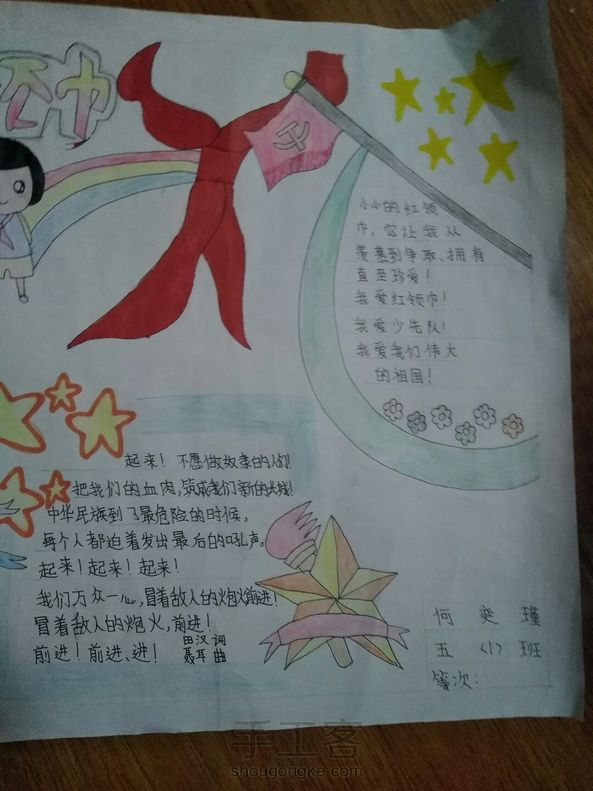 巾
小小的红领
巾，它让我从
羡慕到争取、拥有
直至珍爱！
我爱红领巾！
我爱少先队！
我爱我们伟大
的祖国！
起来！不愿做奴隶的人们！
把我们的血肉，筑成我们新的长城！
中华民族到了最危险的时候，
每个人都迫着发出最后的吼声。
起来！起来！起来！
我们万众一心，冒着敌人的炮火前进！
冒着敌人的炮火，前进！
前进！前进、进！
田汉 词
聂耳 曲
何奕瑾
五〈1〉班
等次：
手工客
shougongke.com